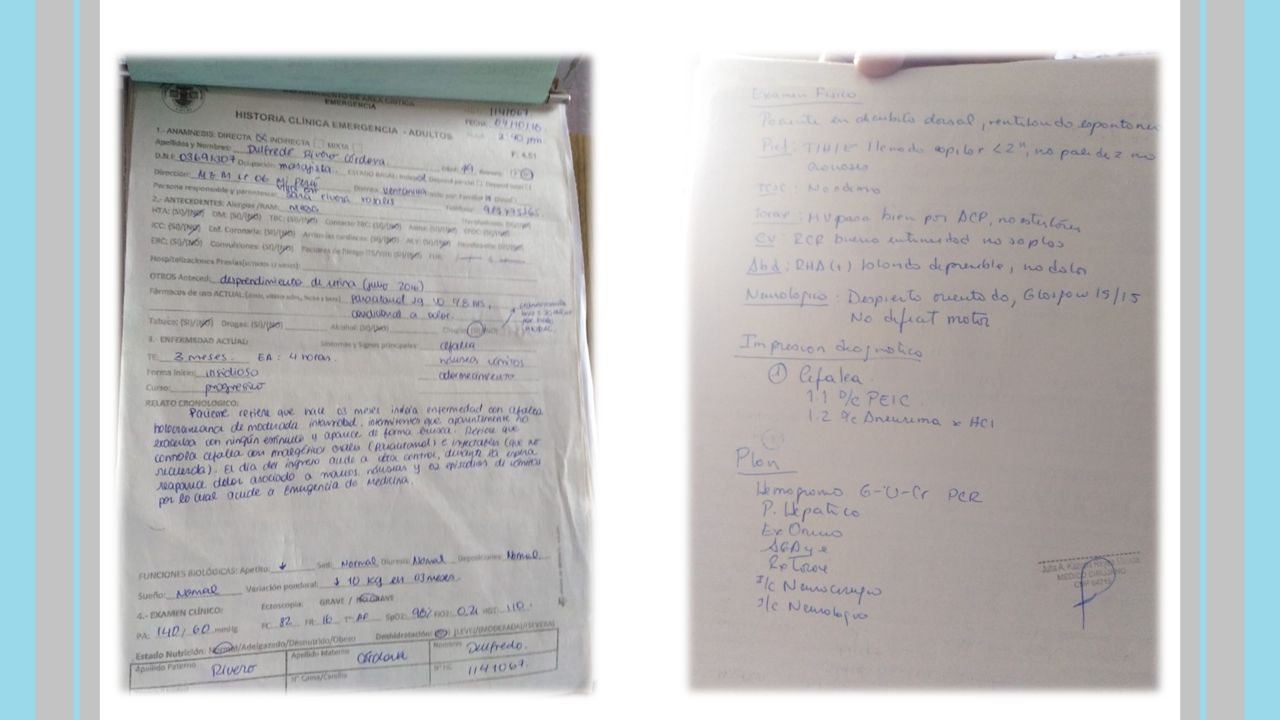 DEPARTAMENTO DE ÁREA CRÍTICA
EMERGENCIA
HISTORIA CLÍNICA EMERGENCIA - ADULTOS
1141067.
FECHA: 04/10/16.
2:40 pm
1.- ANAMNESIS: DIRECTA INDIRECTA MIXTA
Apellidos y Nombres: Dulfredo Rivero Córdova
D.N.I: 03691307 Ocupación: masajista ESTADO BASAL:
Dirección: Mz M Lt 06 Mi Perú ventanilla
Persona responsable y parentesco: Sara rivera rosales
2.- ANTECEDENTES: Alergias /RAM: niega
HTA: (SI)/(NO) DM: (SI)/(NO) TBC: (SI)/(NO) Contacto TBC (SI)/(NO) Asma: (SI)/(NO)
ICC: (SI)/(NO) Enf. Coronaria: (SI)/(NO) Arritmias cardiacas: (SI)/(NO) ACV: (SI)/(NO)
ERC: (SI)/(NO) Convulsiones: (SI)/(NO)
Hospitalizaciones Previas
OTROS Anteced: desprendimiento de urina (julio 2016)
Fármacos de uso ACTUAL: paracetamol 1g
condicional a dolor.
Tabaco: (SI)/(NO) Drogas: (SI)/(NO) Alcohol: (SI)/(NO) (SI)/(NO)
3.- ENFERMEDAD ACTUAL Síntomas y Signos principales: cefalea
TE: 3 meses. EA: 4 horas. náuseas vómitos
Forma Inicio: insidioso adormecimiento
Curso: progresivo
RELATO CRONOLOGICO:
Paciente refiere que hace 03 meses inicia enfermedad con cefalea
holocraneana de moderada intensidad, intermitentes que aparentemente no
exacerba con ningún estímulo y aparece de forma brusca. Refiere que
controla cefalea con analgésicos orales (paracetamol) e inyectables (que no
recuerda). El día del ingreso acude a otro control, durante la espera
reaparece dolor asociado a mareos, náuseas y 02 episodios de vómitos
por lo cual acude a Emergencia de Medicina.
FUNCIONES BIOLÓGICAS: Apetito: ↓ Sed: Normal Diuresis: Normal Deposiciones: Normal.
Sueño: Normal Variación ponderal: ↓ 10 kg en 03 meses.
4.- EXAMEN CLÍNICO: Ectoscopia: GRAVE / NO GRAVE
PA: 140/60 mmHg FC: 82 FR: 16 T°: AF SpO2: 98% FiO2: 0.21 HGT: 110.
Estado Nutrición: Normal/Adelgazado/Desnutrido/Obeso Deshidratación: (LEVE)/(MODERADA)/(SEVERA)
Apellido Paterno Rivero Apellido Materno Córdova Nombres Dulfredo.
N° Cama/Camilla N° HC 1141067.
Examen Físico
Paciente en decúbito dorsal, ventilando espontáneo
Piel: T/H/E llenado capilar < 2", no palidez no
cianosis
TCSC: No edema
Torax: MV pasa bien por ACP, no estertores
CV: RCR buena intensidad no soplos
Abd: RHA (+) blando depresible, no dolor
Neurologico: Despierto orientado, Glasgow 15/15
No deficit motor
Impresion diagnostica
① Cefalea
1.1 D/c PEIC
1.2 D/c Aneurisma x HCl
Plan
Hemograma G-U-Cr PCR
P. Hepatico
Ex Orina
AGA y e
Rx Torax
I/c Neurocirugia
I/c Neurologia
MEDICO CIRUJANO